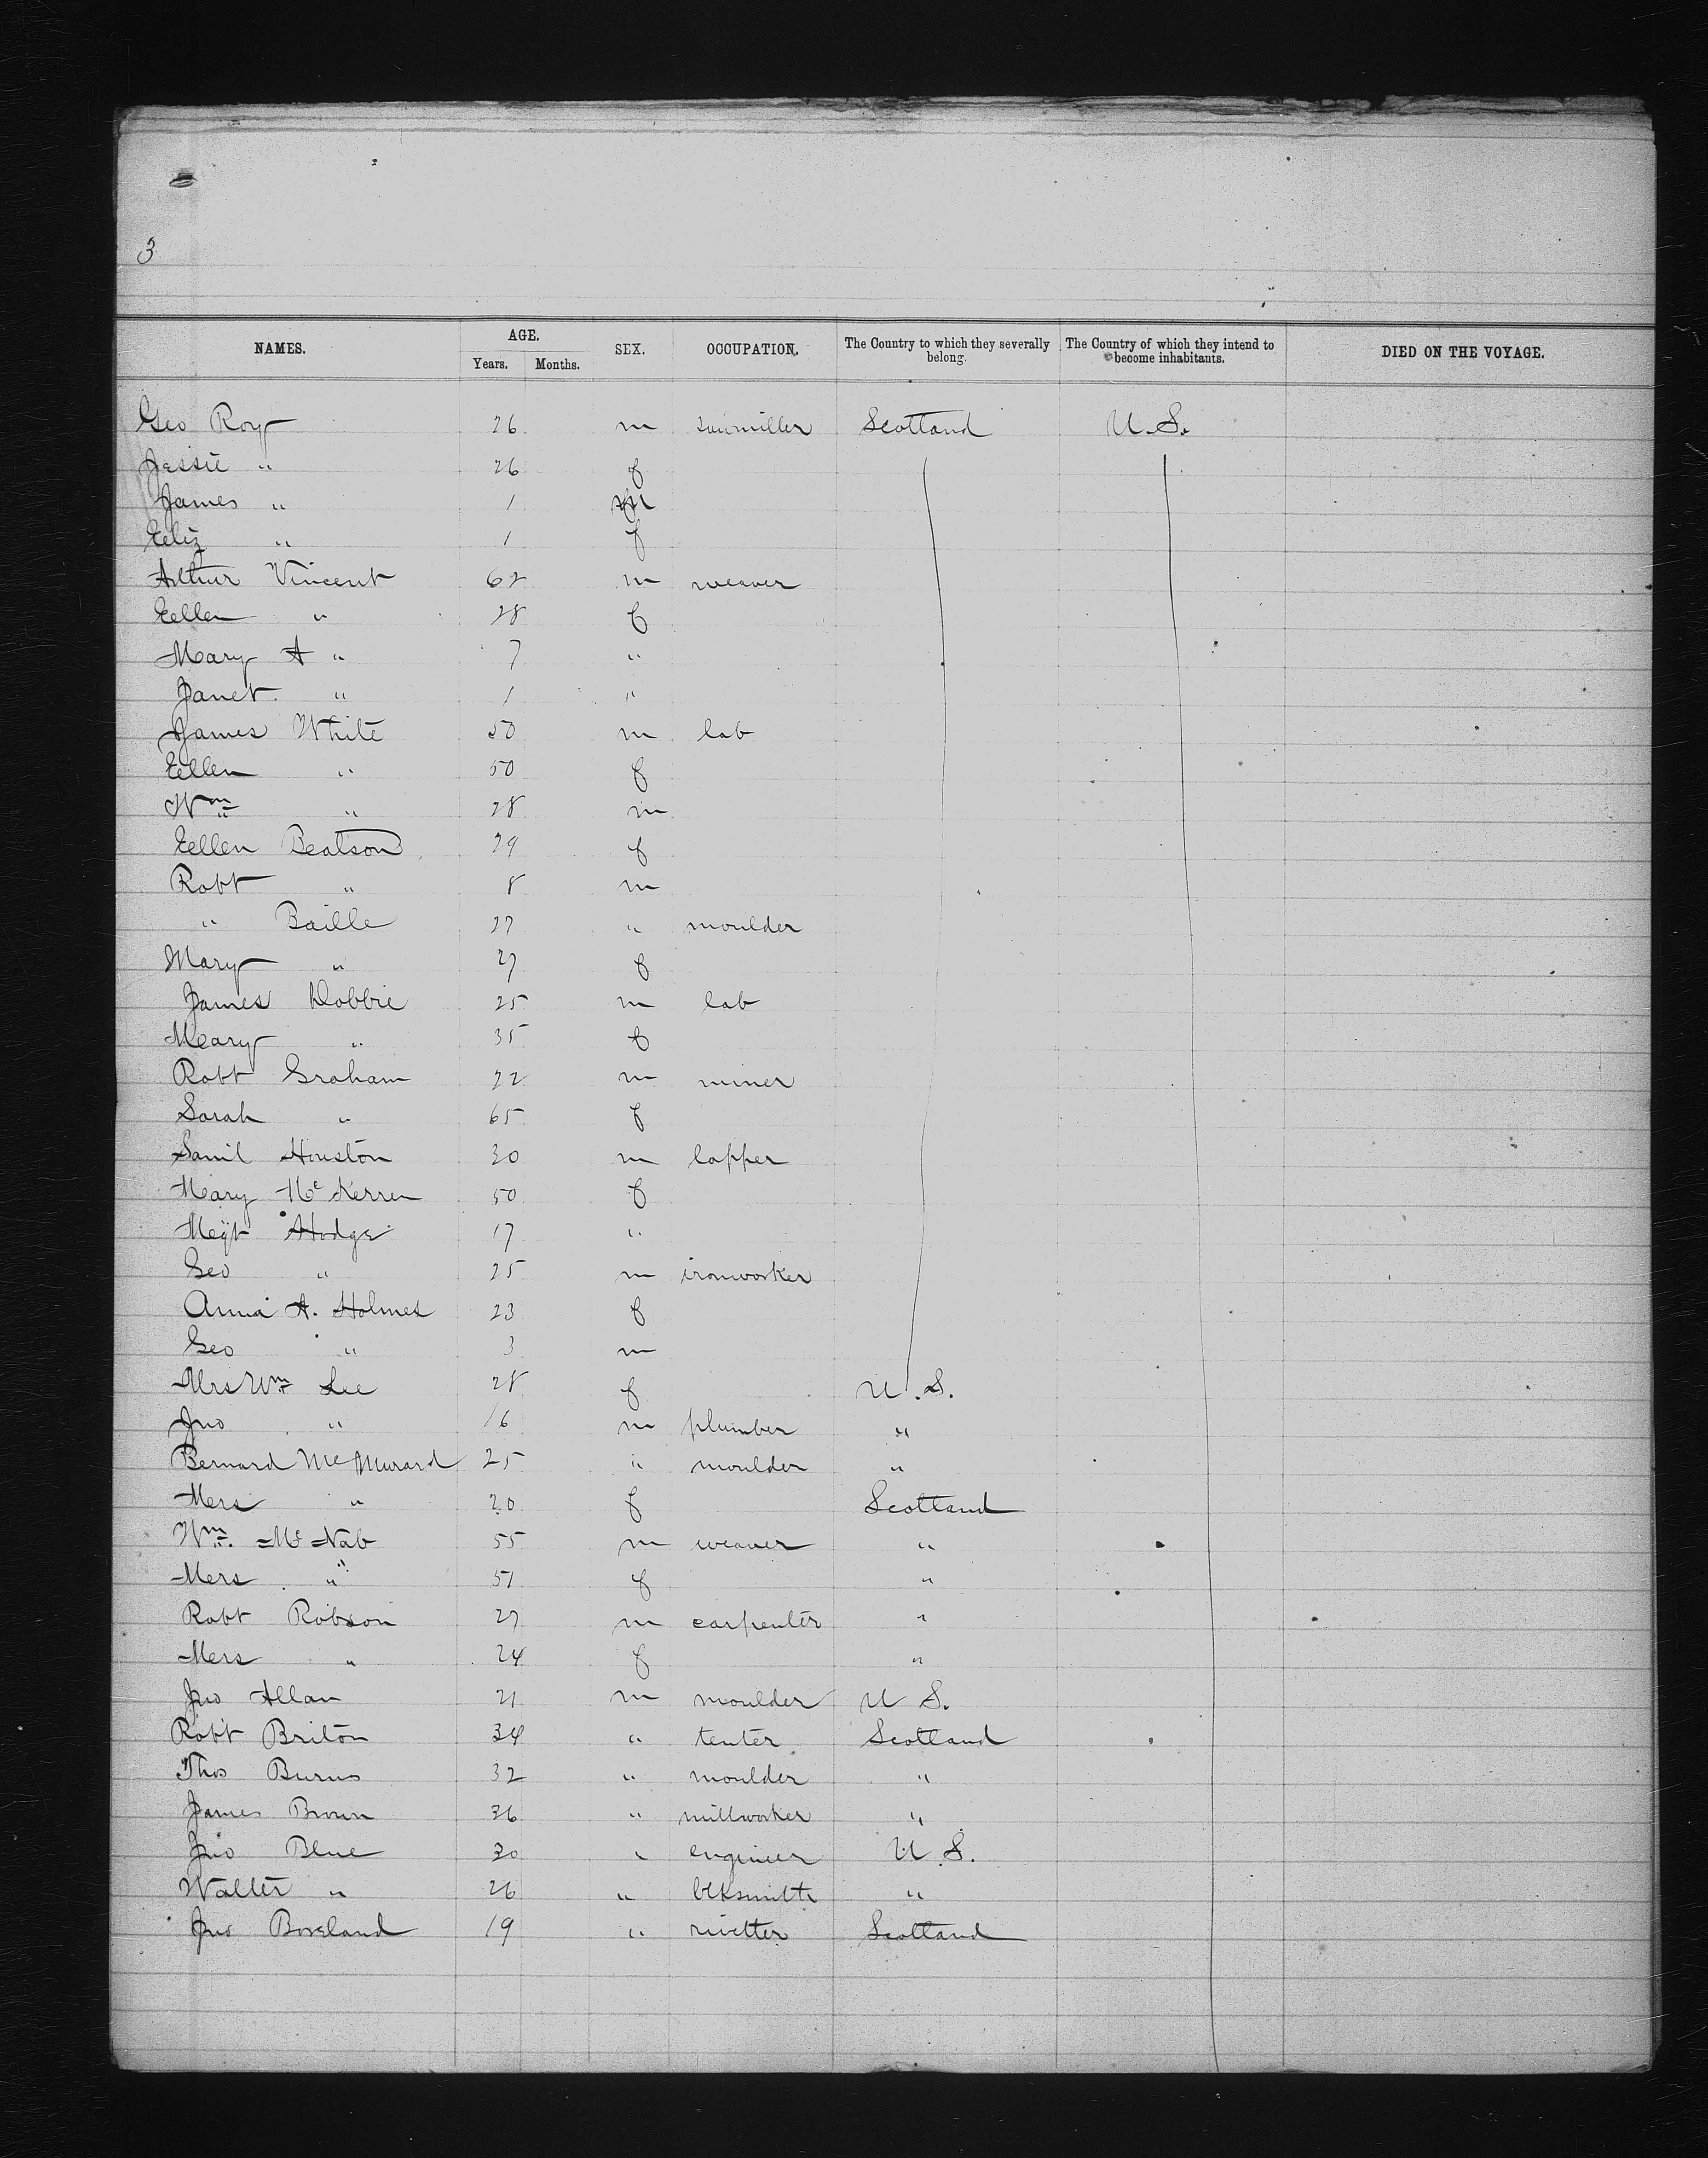 3
NAMES. AGE. Years. Months. SEX. OCCUPATION. The Country to which they severally belong. The Country of which they intend to become inhabitants. DIED ON THE VOYAGE.
Geo Roy 26 m sawmiller Scotland U.S.
Jessie " 26 f
James " 1 m
Eliz " 1 f
Arthur Vincent 62 m weaver
Ellen " 28 f
Mary A " 7 "
Janet " 1 "
James White 50 m lab
Ellen " 50 f
Wm " 28 m
Ellen Beatson 29 f
Robt " 8 m
" Baille 27 " moulder
Mary " 27 f
James Dobbie 25 m lab
Mary " 35 f
Robt Graham 22 m miner
Sarah " 65 f
Saml Houston 30 m lapper
Mary McKerren 50 f
Megt Hodge 17 "
Geo " 25 m ironworker
Anna A. Holmes 23 f
Geo " 3 m
Mrs Wm Lee 28 f U.S.
Jno " 16 m plumber "
Bernard McMurard 25 " moulder "
Mers " 20 f Scotland
Wm. McNab 55 m weaver "
Mers " 51 f "
Robt Robson 27 m carpenter "
Mers " 24 f "
Jno Allan 21 m moulder U S.
Robt Briton 34 " tenter Scotland
Thos Burns 32 " moulder "
James Brown 36 " millworker "
Jno Blue 30 " engineer U.S.
Walter " 26 " blksmith "
Jno Boreland 19 " rivetter Scotland